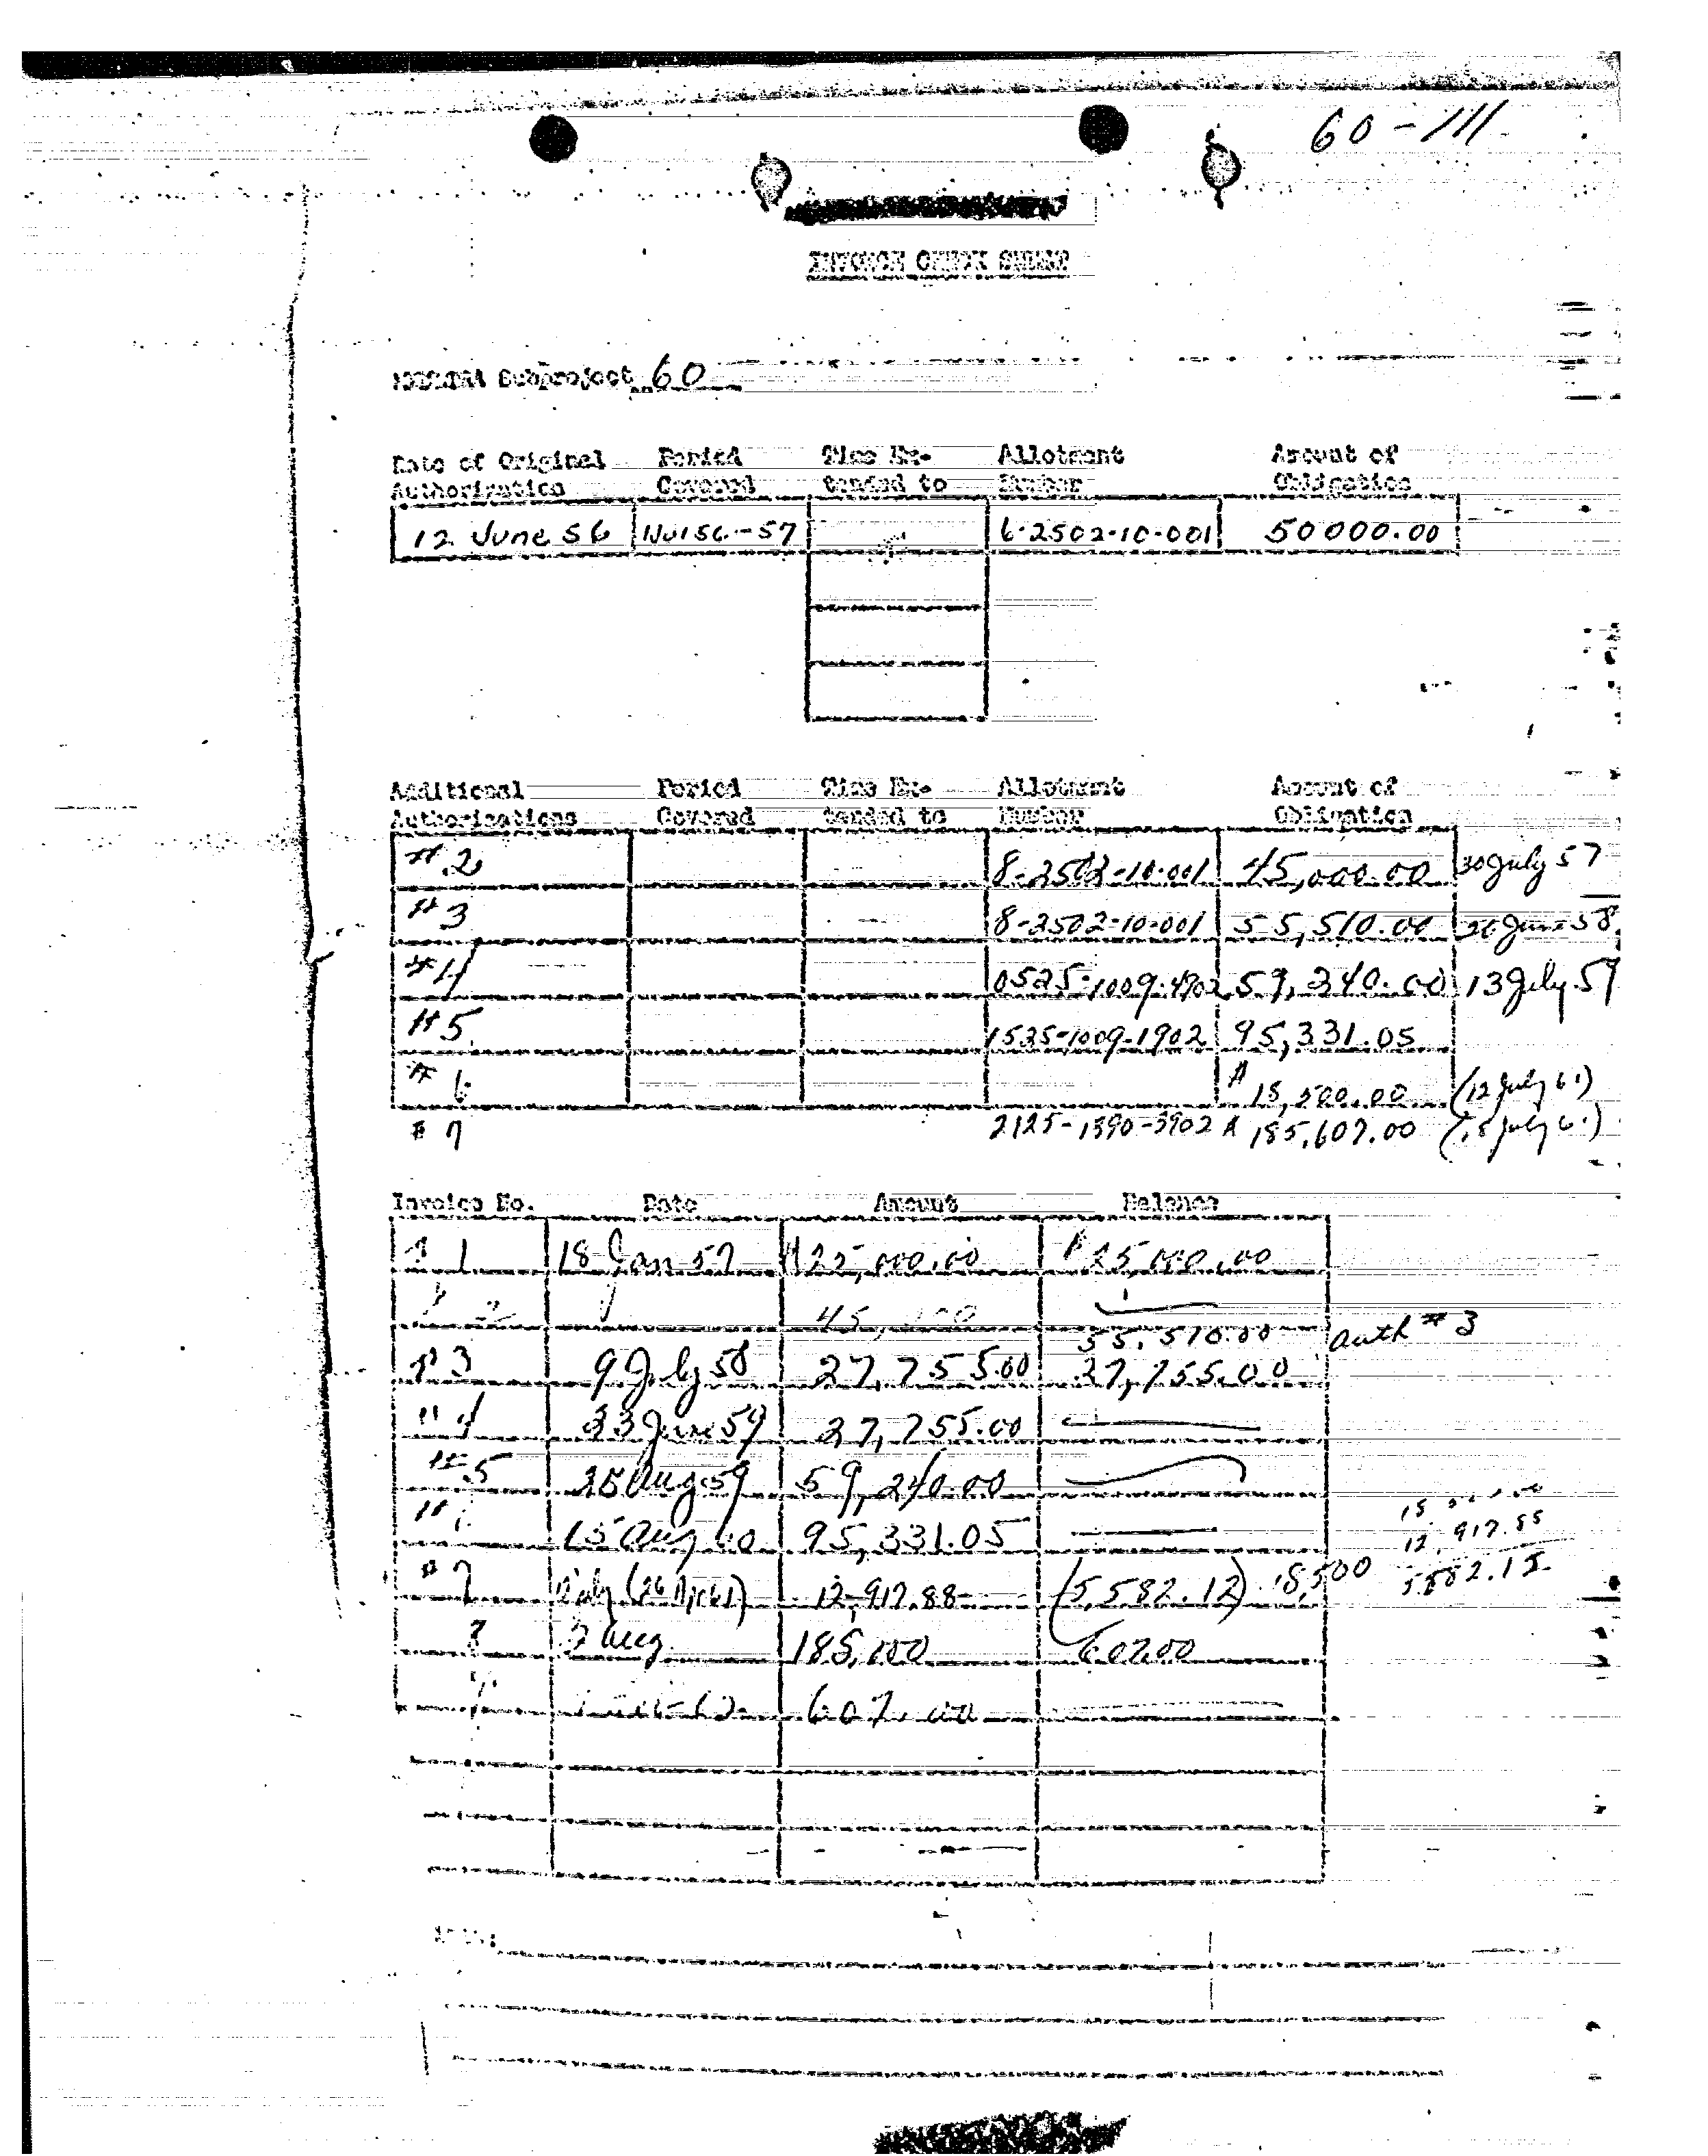 60-111
INVOICE CHECK SHEET
MKULTRA Subproject 60
Date of Original Period Time Ex- Allotment Amount of
Authorization Covered tended to Number Obligation
12 June 56 -57 6-2502-10-001 50000.00
Additional Period Time Ex- Allotment Amount of
Authorizations Covered tended to Number Obligation
# 2 8-2502-10-001 45,000.00 30 July 57
# 3 8-2502-10-001 55,510.00 June 58
#4 0525-1009-4902 59,240.00 13 July 59
#5 1525-1009-1902 95,331.05
# 6 18,500.00 (12 July 61)
# 7 2125-1390-3902 185,607.00 (18 July 61)
Invoice No. Date Amount Balance
# 1 18 Jan 57 25,000.00 25,000.00
2 45,000
55,510.00 Auth # 3
# 3 9 July 58 27,755.00 27,755.00
# 4 23 June 59 27,755.00
# 5 Aug 59 59,240.00
# 15 Aug 60 95,331.05
12,917.88
# 7 July 12,917.88 (5,582.12) 18,500 5582.12
8 Aug 185,000 607.00
607.00